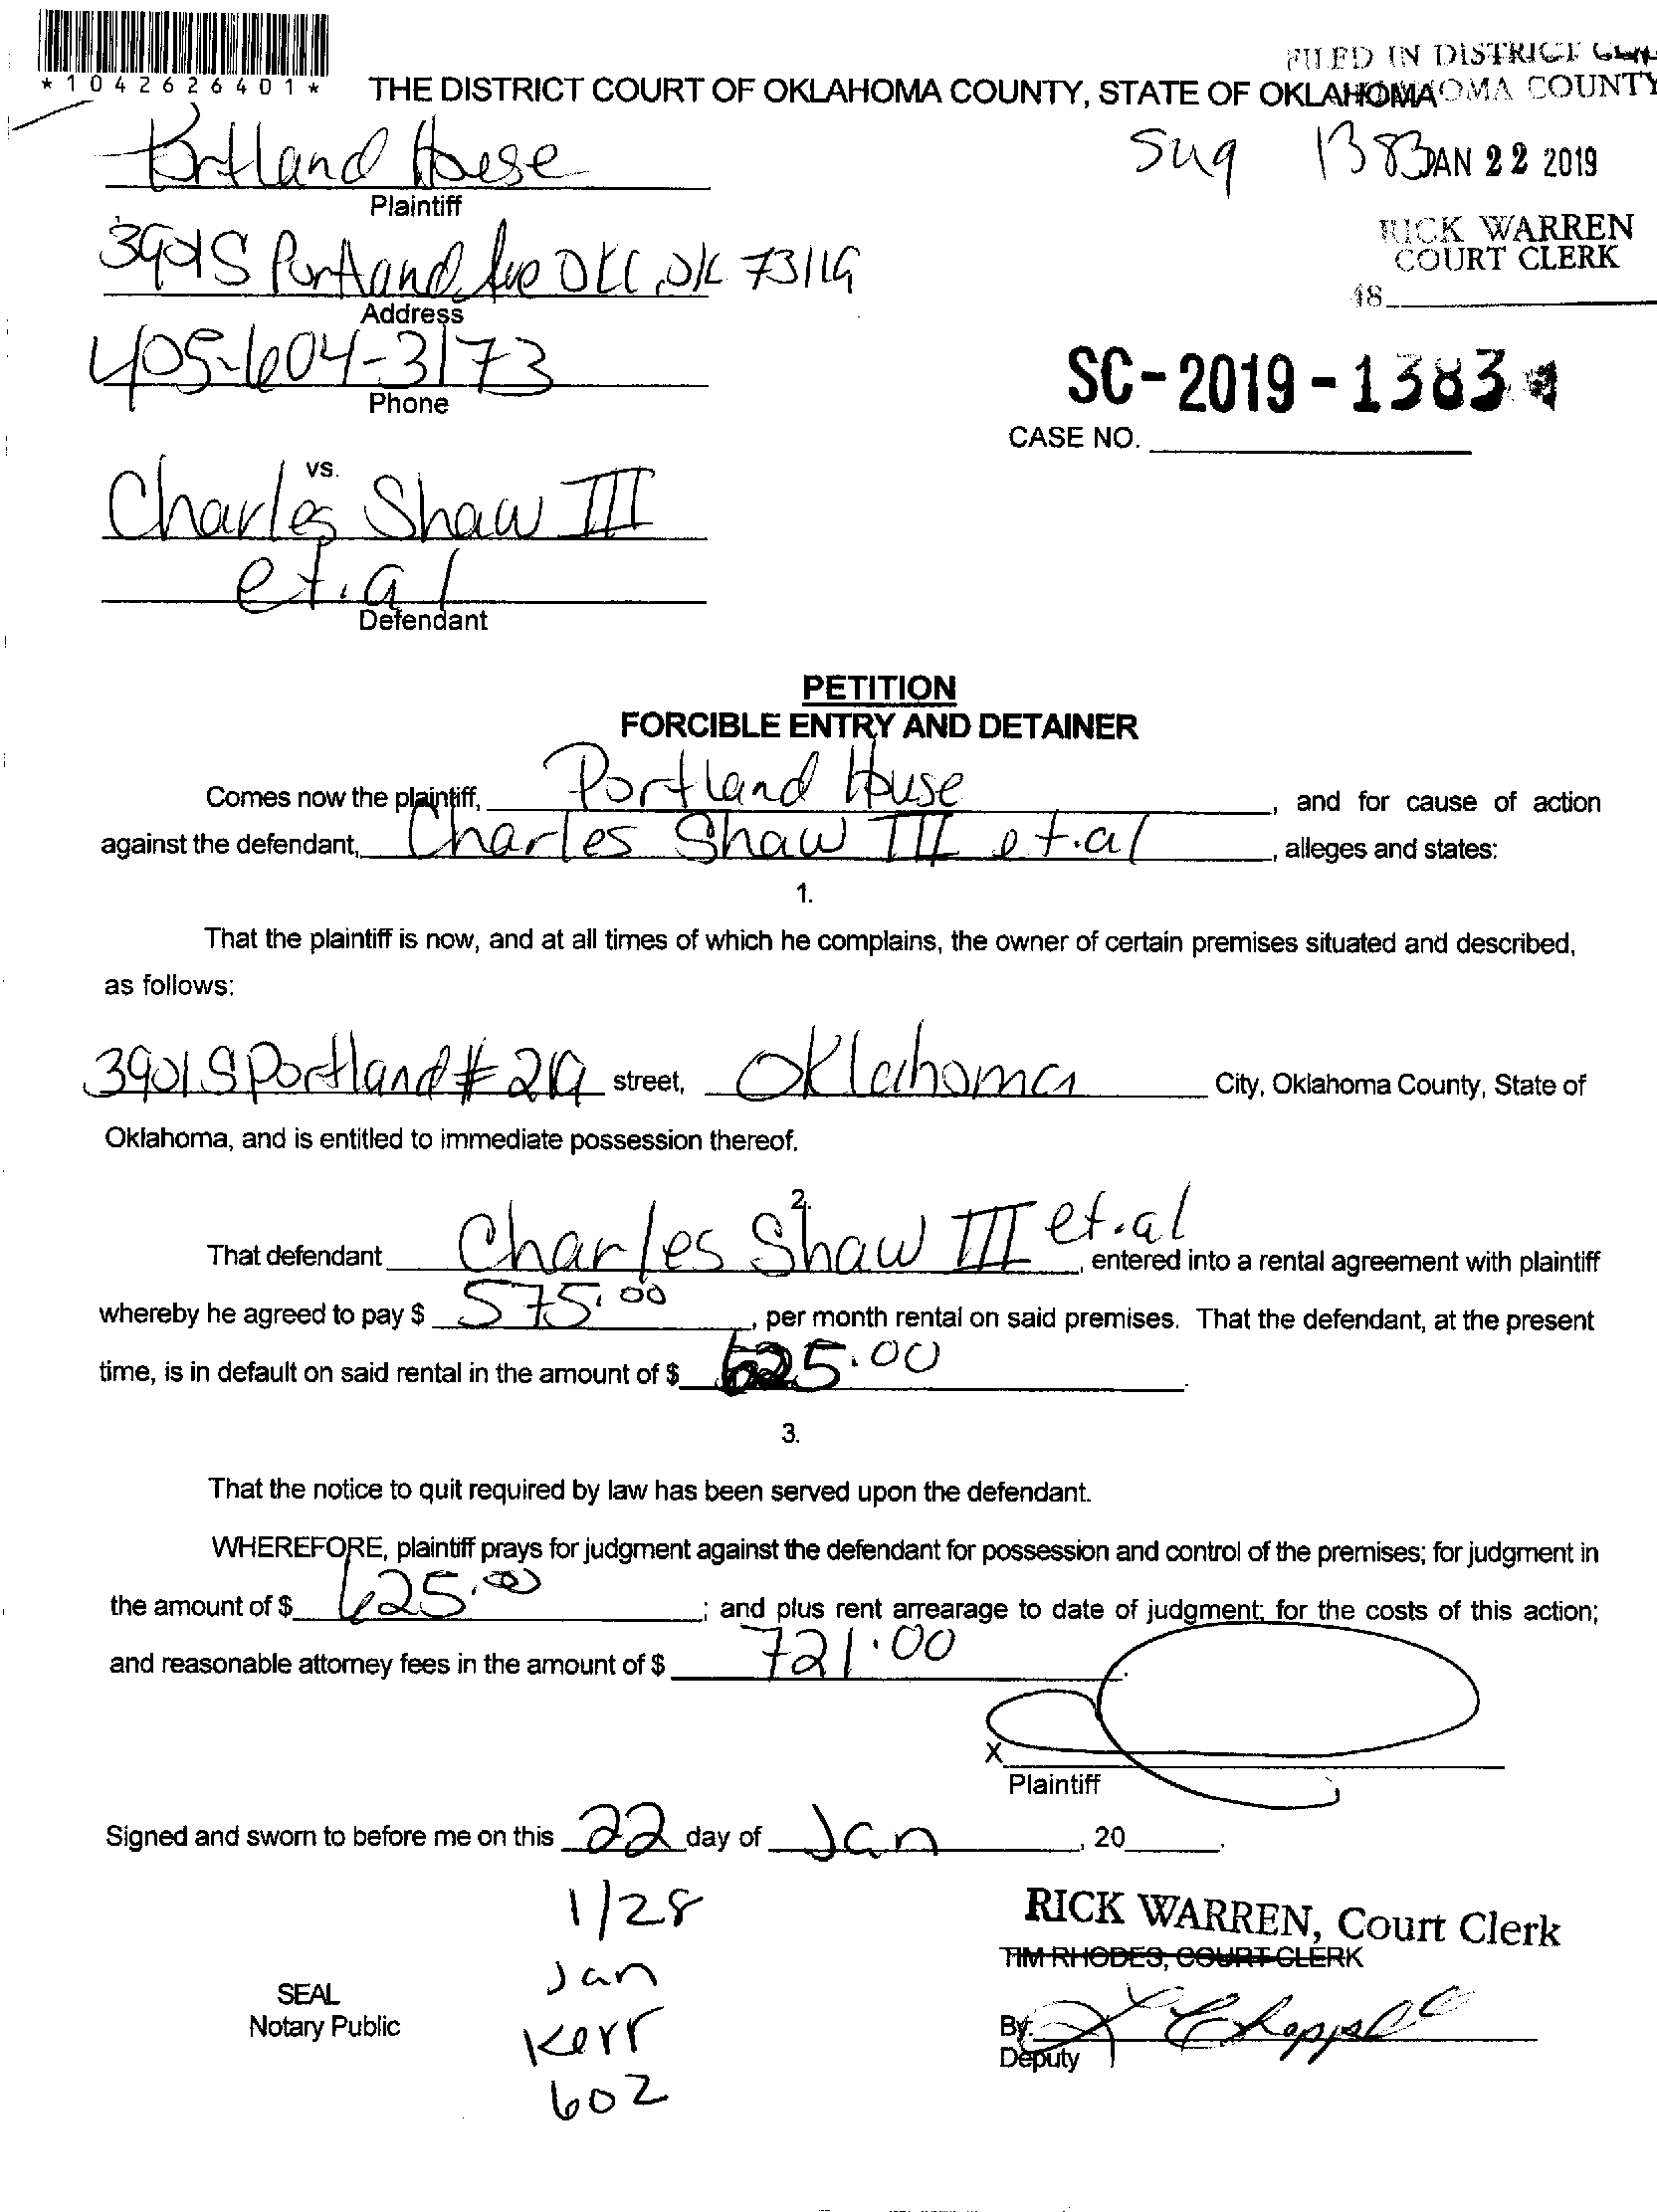 *10426264 01*
FILED IN DISTRICT
THE DISTRICT COURT OF OKLAHOMA COUNTY, STATE OF OKLAHOMA
OKLAHOMA COUNTY
Portland House
Plaintiff
1383
JAN 22 2019
RICK WARREN
COURT CLERK
48
3901 S Portland Ave OKC, OK 73119
Address
405-604-3173
Phone
SC-2019-1383
CASE NO.
vs.
Charles Shaw III
et.al
Defendant
PETITION
FORCIBLE ENTRY AND DETAINER
Comes now the plaintiff, Portland House, and for cause of action
against the defendant, Charles Shaw III et.al, alleges and states:
1.
That the plaintiff is now, and at all times of which he complains, the owner of certain premises situated and described,
as follows:
3901 S Portland # 219 street, Oklahoma City, Oklahoma County, State of
Oklahoma, and is entitled to immediate possession thereof.
2.
That defendant Charles Shaw III et.al, entered into a rental agreement with plaintiff
whereby he agreed to pay $ 575.00, per month rental on said premises. That the defendant, at the present
time, is in default on said rental in the amount of $ 625.00.
3.
That the notice to quit required by law has been served upon the defendant.
WHEREFORE, plaintiff prays for judgment against the defendant for possession and control of the premises; for judgment in
the amount of $ 625.00; and plus rent arrearage to date of judgment; for the costs of this action;
and reasonable attorney fees in the amount of $ 721.00.
X
Plaintiff
Signed and sworn to before me on this 22 day of Jan, 20 .
1/28
Jan
Kerr
602
SEAL
Notary Public
RICK WARREN, Court Clerk
TIM RHODES, COURT CLERK
By: L Chappell
Deputy